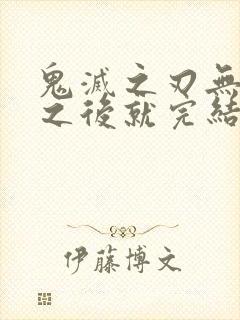 鬼滅之刃無
之後就完結
伊藤博文